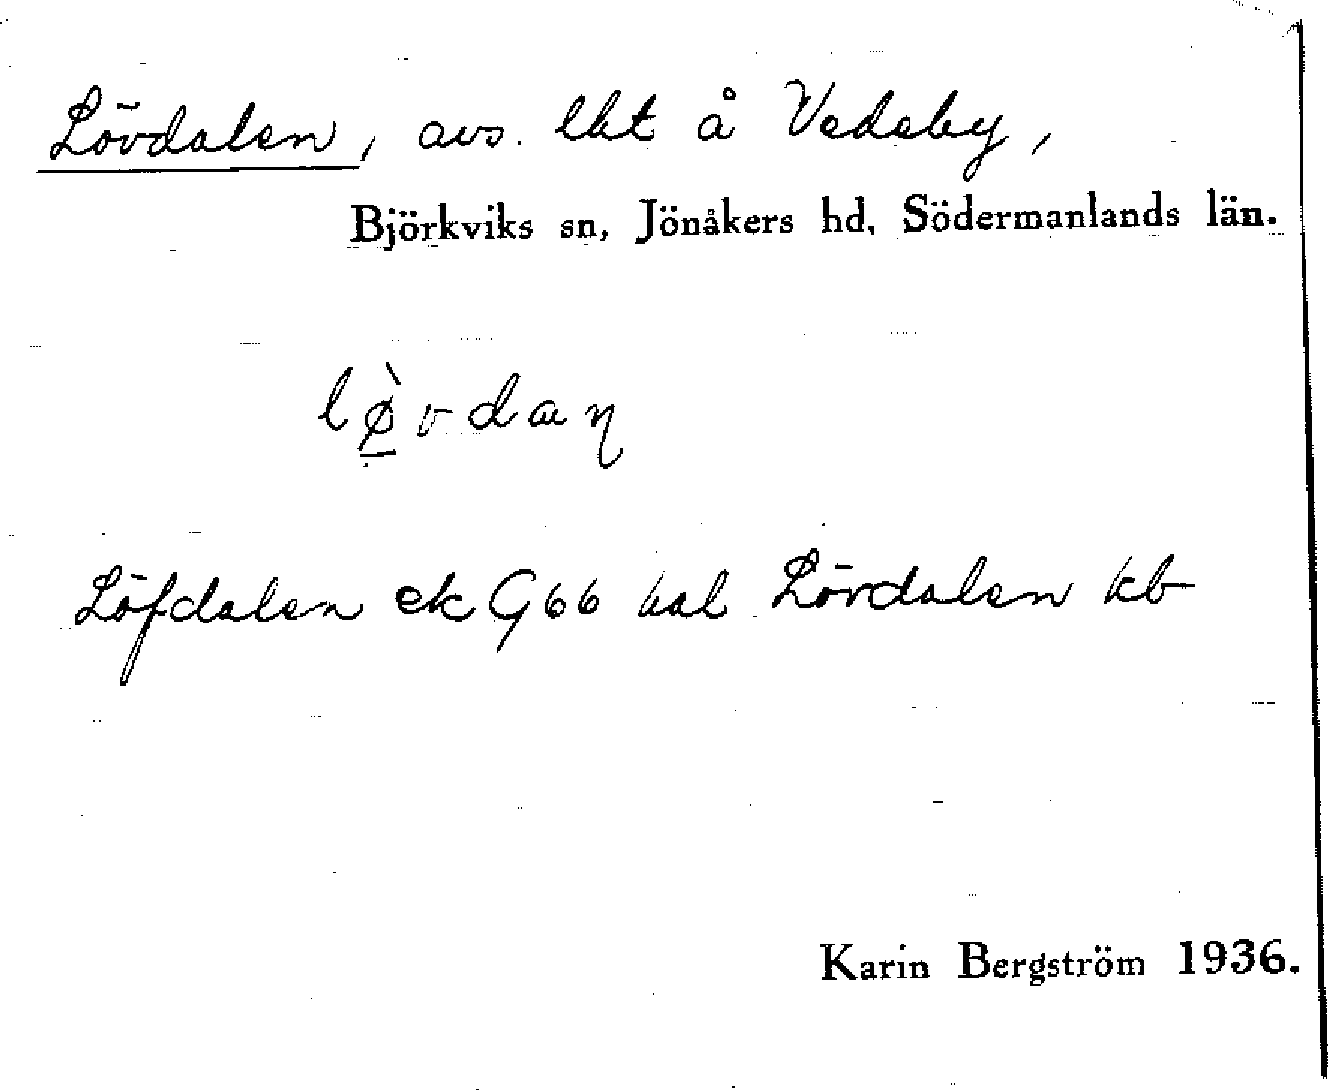 Lövdalen, avs. lht å Vedeby,
Björkviks sn, Jönåkers hd, Södermanlands län.
lø̀vdaɳ
Löfdalen ek G66 hal Lövdalen kb
Karin Bergström 1936.